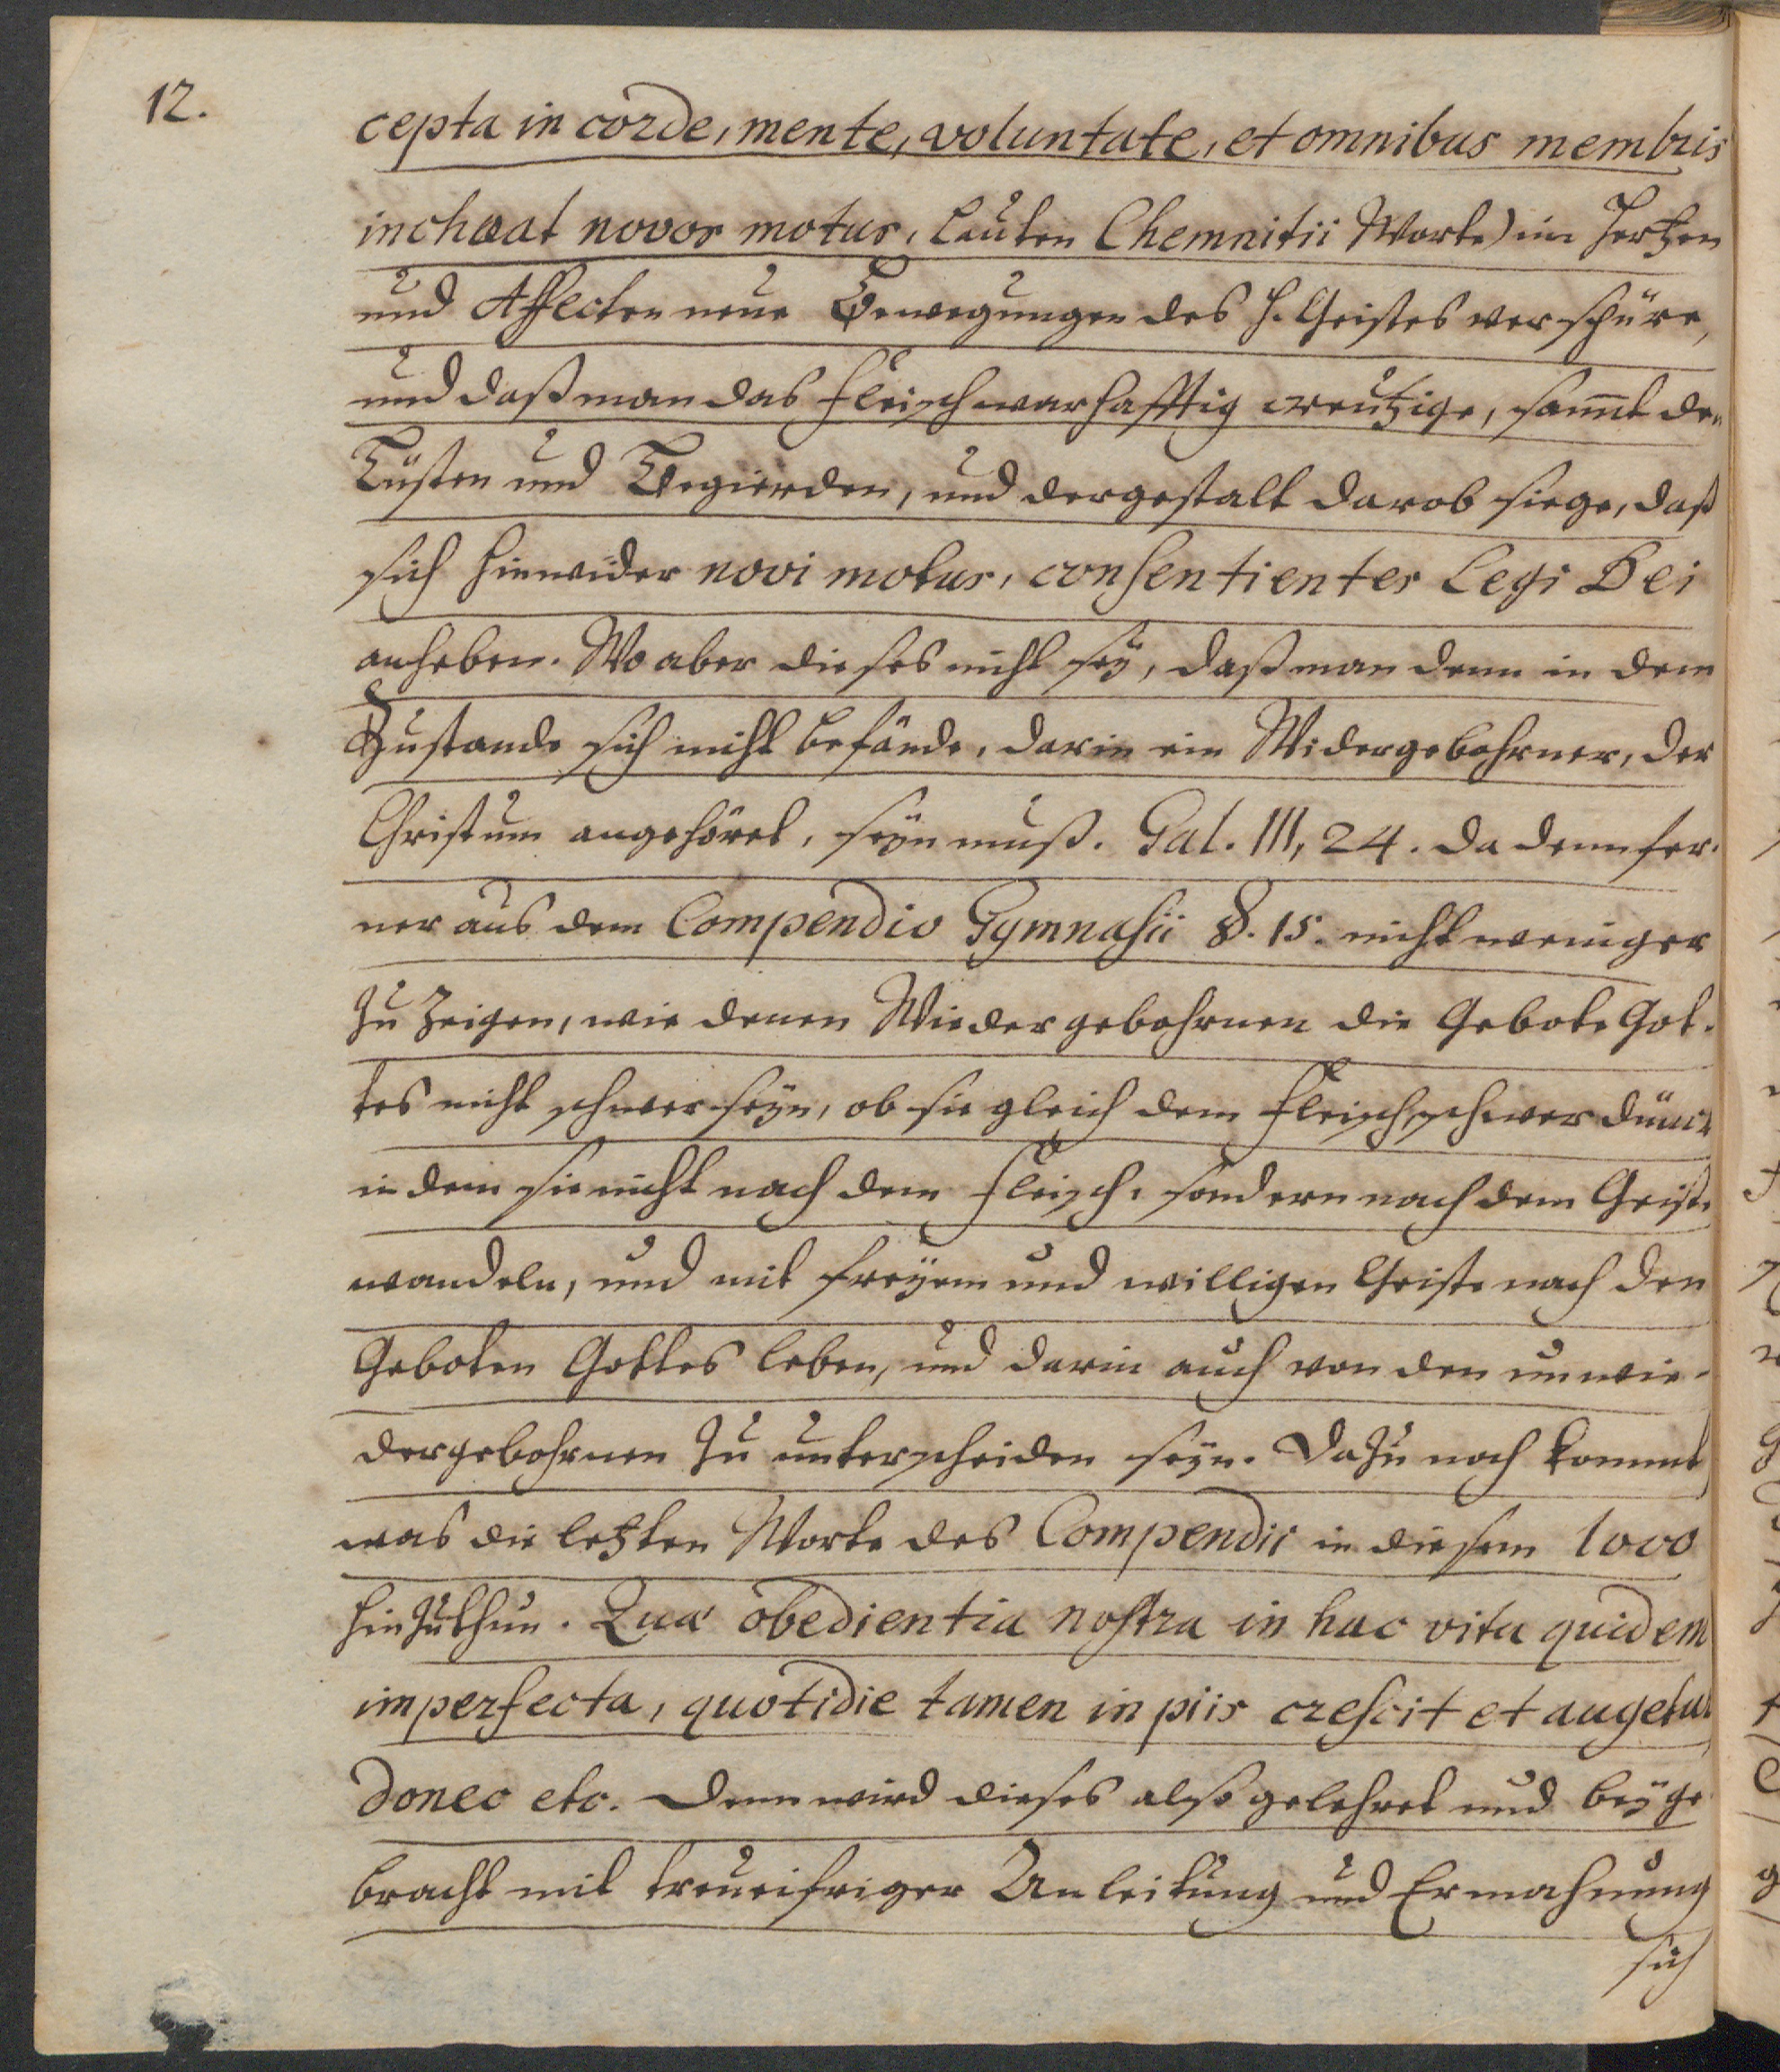 12.
cepta in corde, mente, voluntate, et omnibus membris
inchoat novos motus, lauten Chemnitii Worte) im Hertzen
und Affecten neue Bewegungen des H. Geistes verspüre,
und daß man das Fleisch warhafftig creutzige, sammt den
Lüsten und Begierden, und dergestalt darob siege, daß
sich hinwider novi motus, consentientes Legi Dei
anheben. Wo aber dieses nicht sey, daß man denn in dem
Zustande sich nicht befände, darin ein Widergebohrner, der
Christum angehöret, seyn muß. Gal. III, 24. da denn fer-
ner aus dem Compendio Gymnasii §. 15. nicht weniger
zu zeigen, wie denen Wiedergebohrnen die Gebote Got-
tes nicht schwer seyn, ob sie gleich dem Fleisch schwer dünck
in dem sie nicht nach dem Fleisch, sondern nach dem Geiste
wandeln, und mit freyem und willigen Geiste nach den
Geboten Gottes leben, und darin auch von den unwie-
dergebohrnen zu unterscheiden seyn. Dazu noch kommt
was die letzten Worte des Compendii in diesem loco
hinzuthun. Quæ obedientia nostra in hac vita quidem
imperfecta, quotidie tamen in piis crescit et augetur
donec etc. Denn wird dieses also gelehret und beyge
bracht mit treueifriger Anleitung und Ermahnung
sich